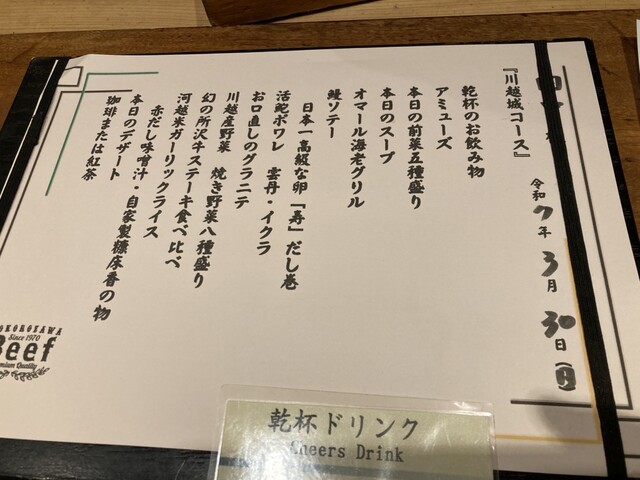 『川越城コース』
令和7年3月30日(日)
乾杯のお飲み物
アミューズ
本日の前菜五種盛り
本日のスープ
オマール海老グリル
鰻ソテー
日本一高級な卵「寿」だし巻
活鮑ポワレ 雲丹・イクラ
お口直しのグラニテ
川越産野菜 焼き野菜八種盛り
幻の所沢牛ステーキ食べ比べ
河越米ガーリックライス
赤だし味噌汁・自家製糠床香の物
本日のデザート
珈琲または紅茶
Since 1970
Beef
乾杯ドリンク
Cheers Drink